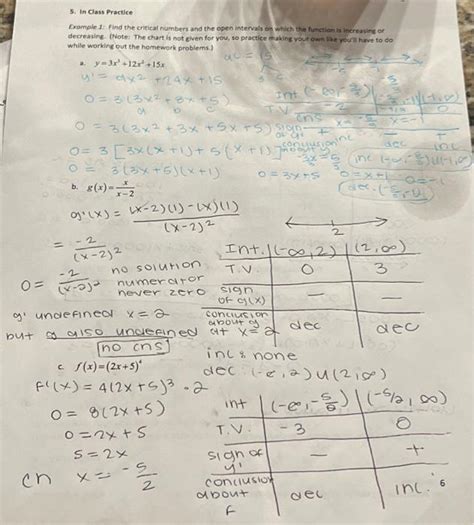 5. In Class Practice
Example 1: Find the critical numbers and the open intervals on which the function is increasing or
decreasing. (Note: The chart is not given for you, so practice making your own like you'll have to do
while working out the homework problems.)
a. y=3x³+12x²+15x
y' = 9x² + 24x + 15
0 = 3(3x² + 8x + 5)
a b
0 = 3(3x² + 3x + 5x + 5)
0 = 3[3x(x+1) + 5(x+1)]
0 = 3(3x+5)(x+1)
0 = 3x+5 0 = x+1
Int
T.V. -2 0
cns
sign
dec inc
b. g(x) = x/(x-2)
g'(x) = (x-2)(1) - (x)(1)
(x-2)²
2
= -2/(x-2)²
0 = -2/(x-2)² no solution
numerator
never zero
g' undefined x = 2
but g also undefined at x = 2
no cns
Int. (-∞, 2) (2, ∞)
T.V. 0 3
sign of g'(x) – –
conclusion about g dec dec
inc: none
dec: (-∞, 2) U (2, ∞)
c. f(x) = (2x+5)⁴
f'(x) = 4(2x+5)³ · 2
0 = 8(2x+5)
0 = 2x + 5
5 = 2x
cn x = -5/2
int (-∞, -5/2) (-5/2, ∞)
T.V. -3 0
sign of y' – +
conclusion about f dec inc.
6